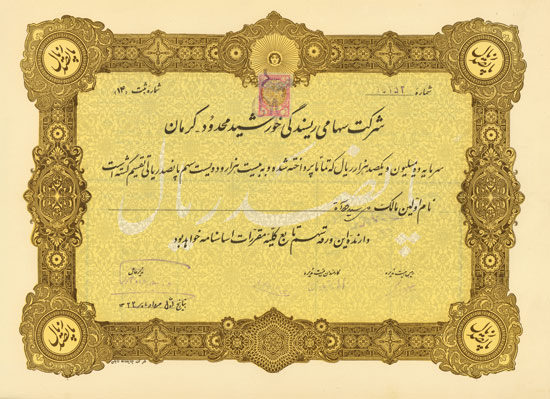 پانصد ریال
پانصد ریال
شماره ۱۵۱۵۲
شماره ثبت (۱۳)
شرکت سهامی ریسندگی خورشید محدود - کرمان
سرمایه ده میلیون و یکصد هزار ریال که تماماً پرداخته شده و به بیست هزار و دویست سهم پانصد ریالی تقسیم گشته است
پانصد ریال
نام اولین مالک
دارنده این ورقه سهم تابع کلیه مقررات اساسنامه خواهد بود
رئیس هیئت مدیره
کارمندان هیئت مدیره
مدیر عامل
بتاریخ اول ماه ۱۳۲۲
پانصد ریال
پانصد ریال